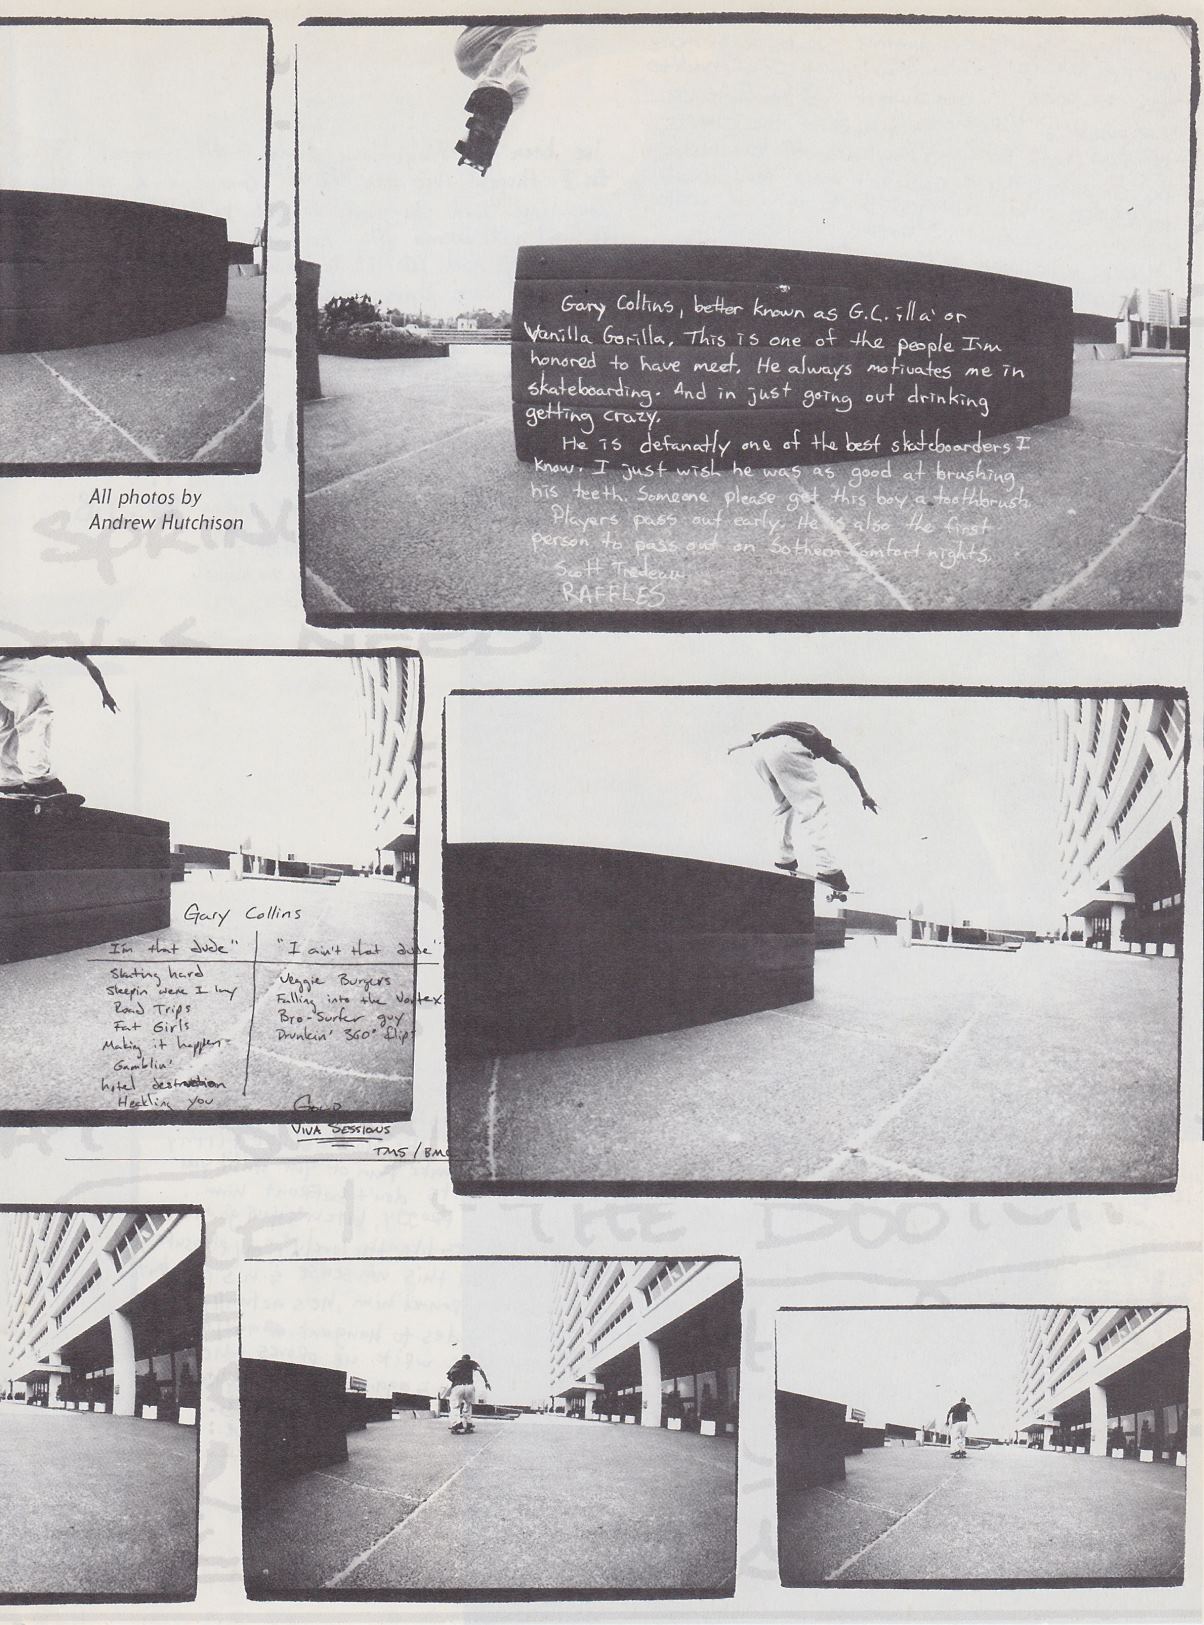 Gary Collins, better known as G.C. illa' or
Vanilla Gorilla. This is one of the people I'm
honored to have meet. He always motivates me in
skateboarding. And in just going out drinking
getting crazy.
He is defanatly one of the best skateboarders I
know. I just wish he was as good at brushing
his teeth. Someone please get this boy a toothbrush.
Players pass out early. He is also the first
person to pass out on Sothern Comfort nights.
Scott Tredeau
RAFFLES
All photos by
Andrew Hutchison
Gary Collins
I'm that dude"
Skating hard
Sleepin were I lay
Road Trips
Fat Girls
Making it happen
Gamblin'
hotel destruction
Heckling you
"I ain't that dude"
Veggie Burgers
Falling into the Vortex
Bro-Surfer guy
Drunkin' 360° flip
VIVA SESSIONS
TMS / BMC
THE